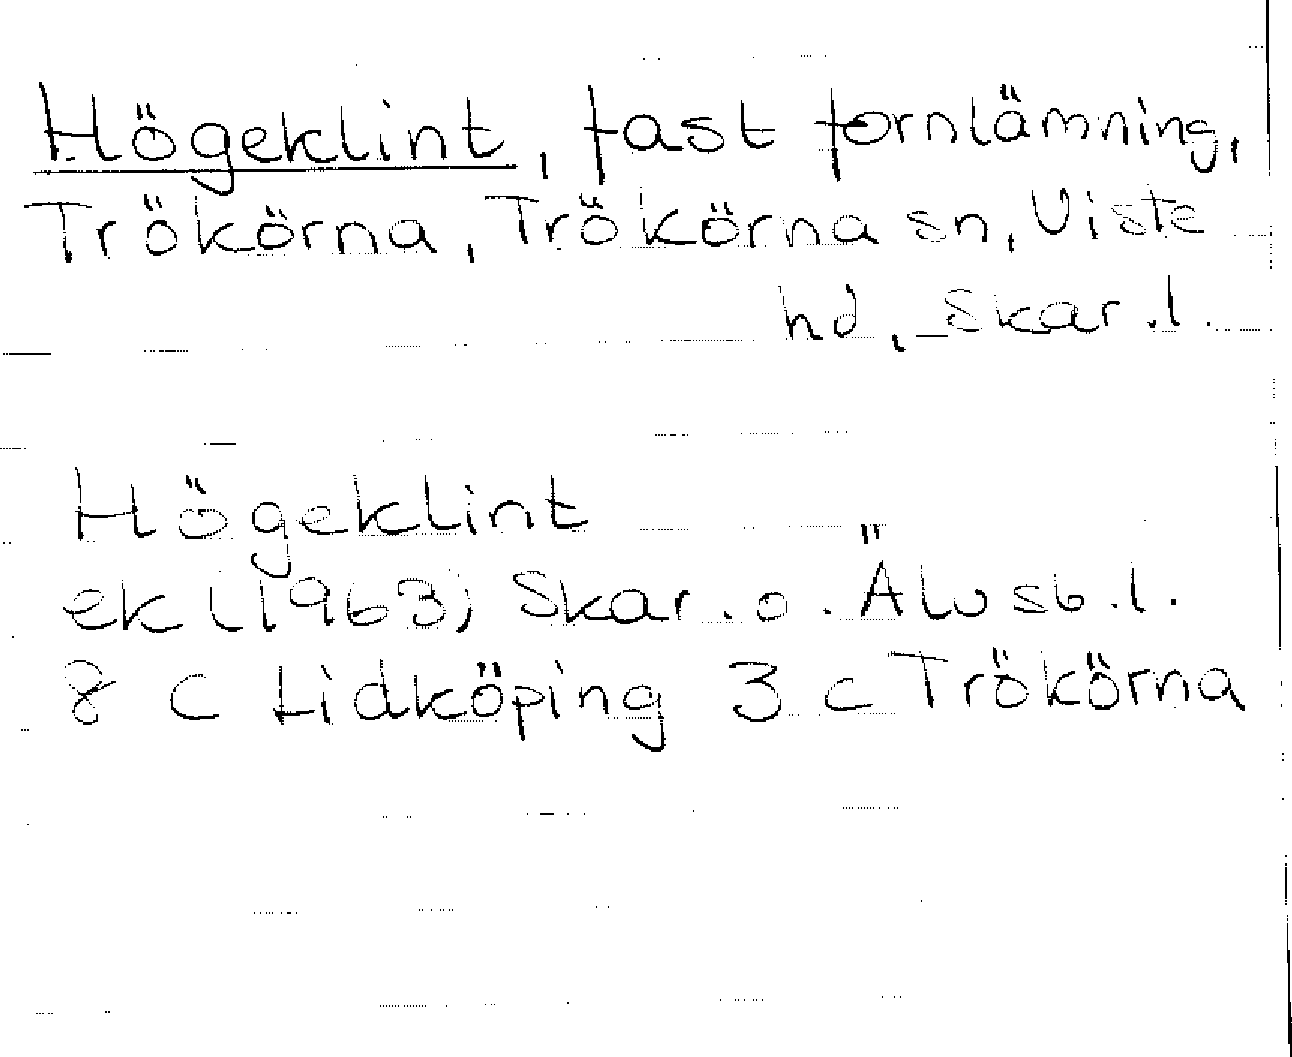 Högeklint, fast fornlämning,
Trökörna, Trökörna sn, Viste
hd, Skar.l.
Högeklint
ek (1963) Skar. o. Älvsb.l.
8 C Lidköping 3 c Trökörna